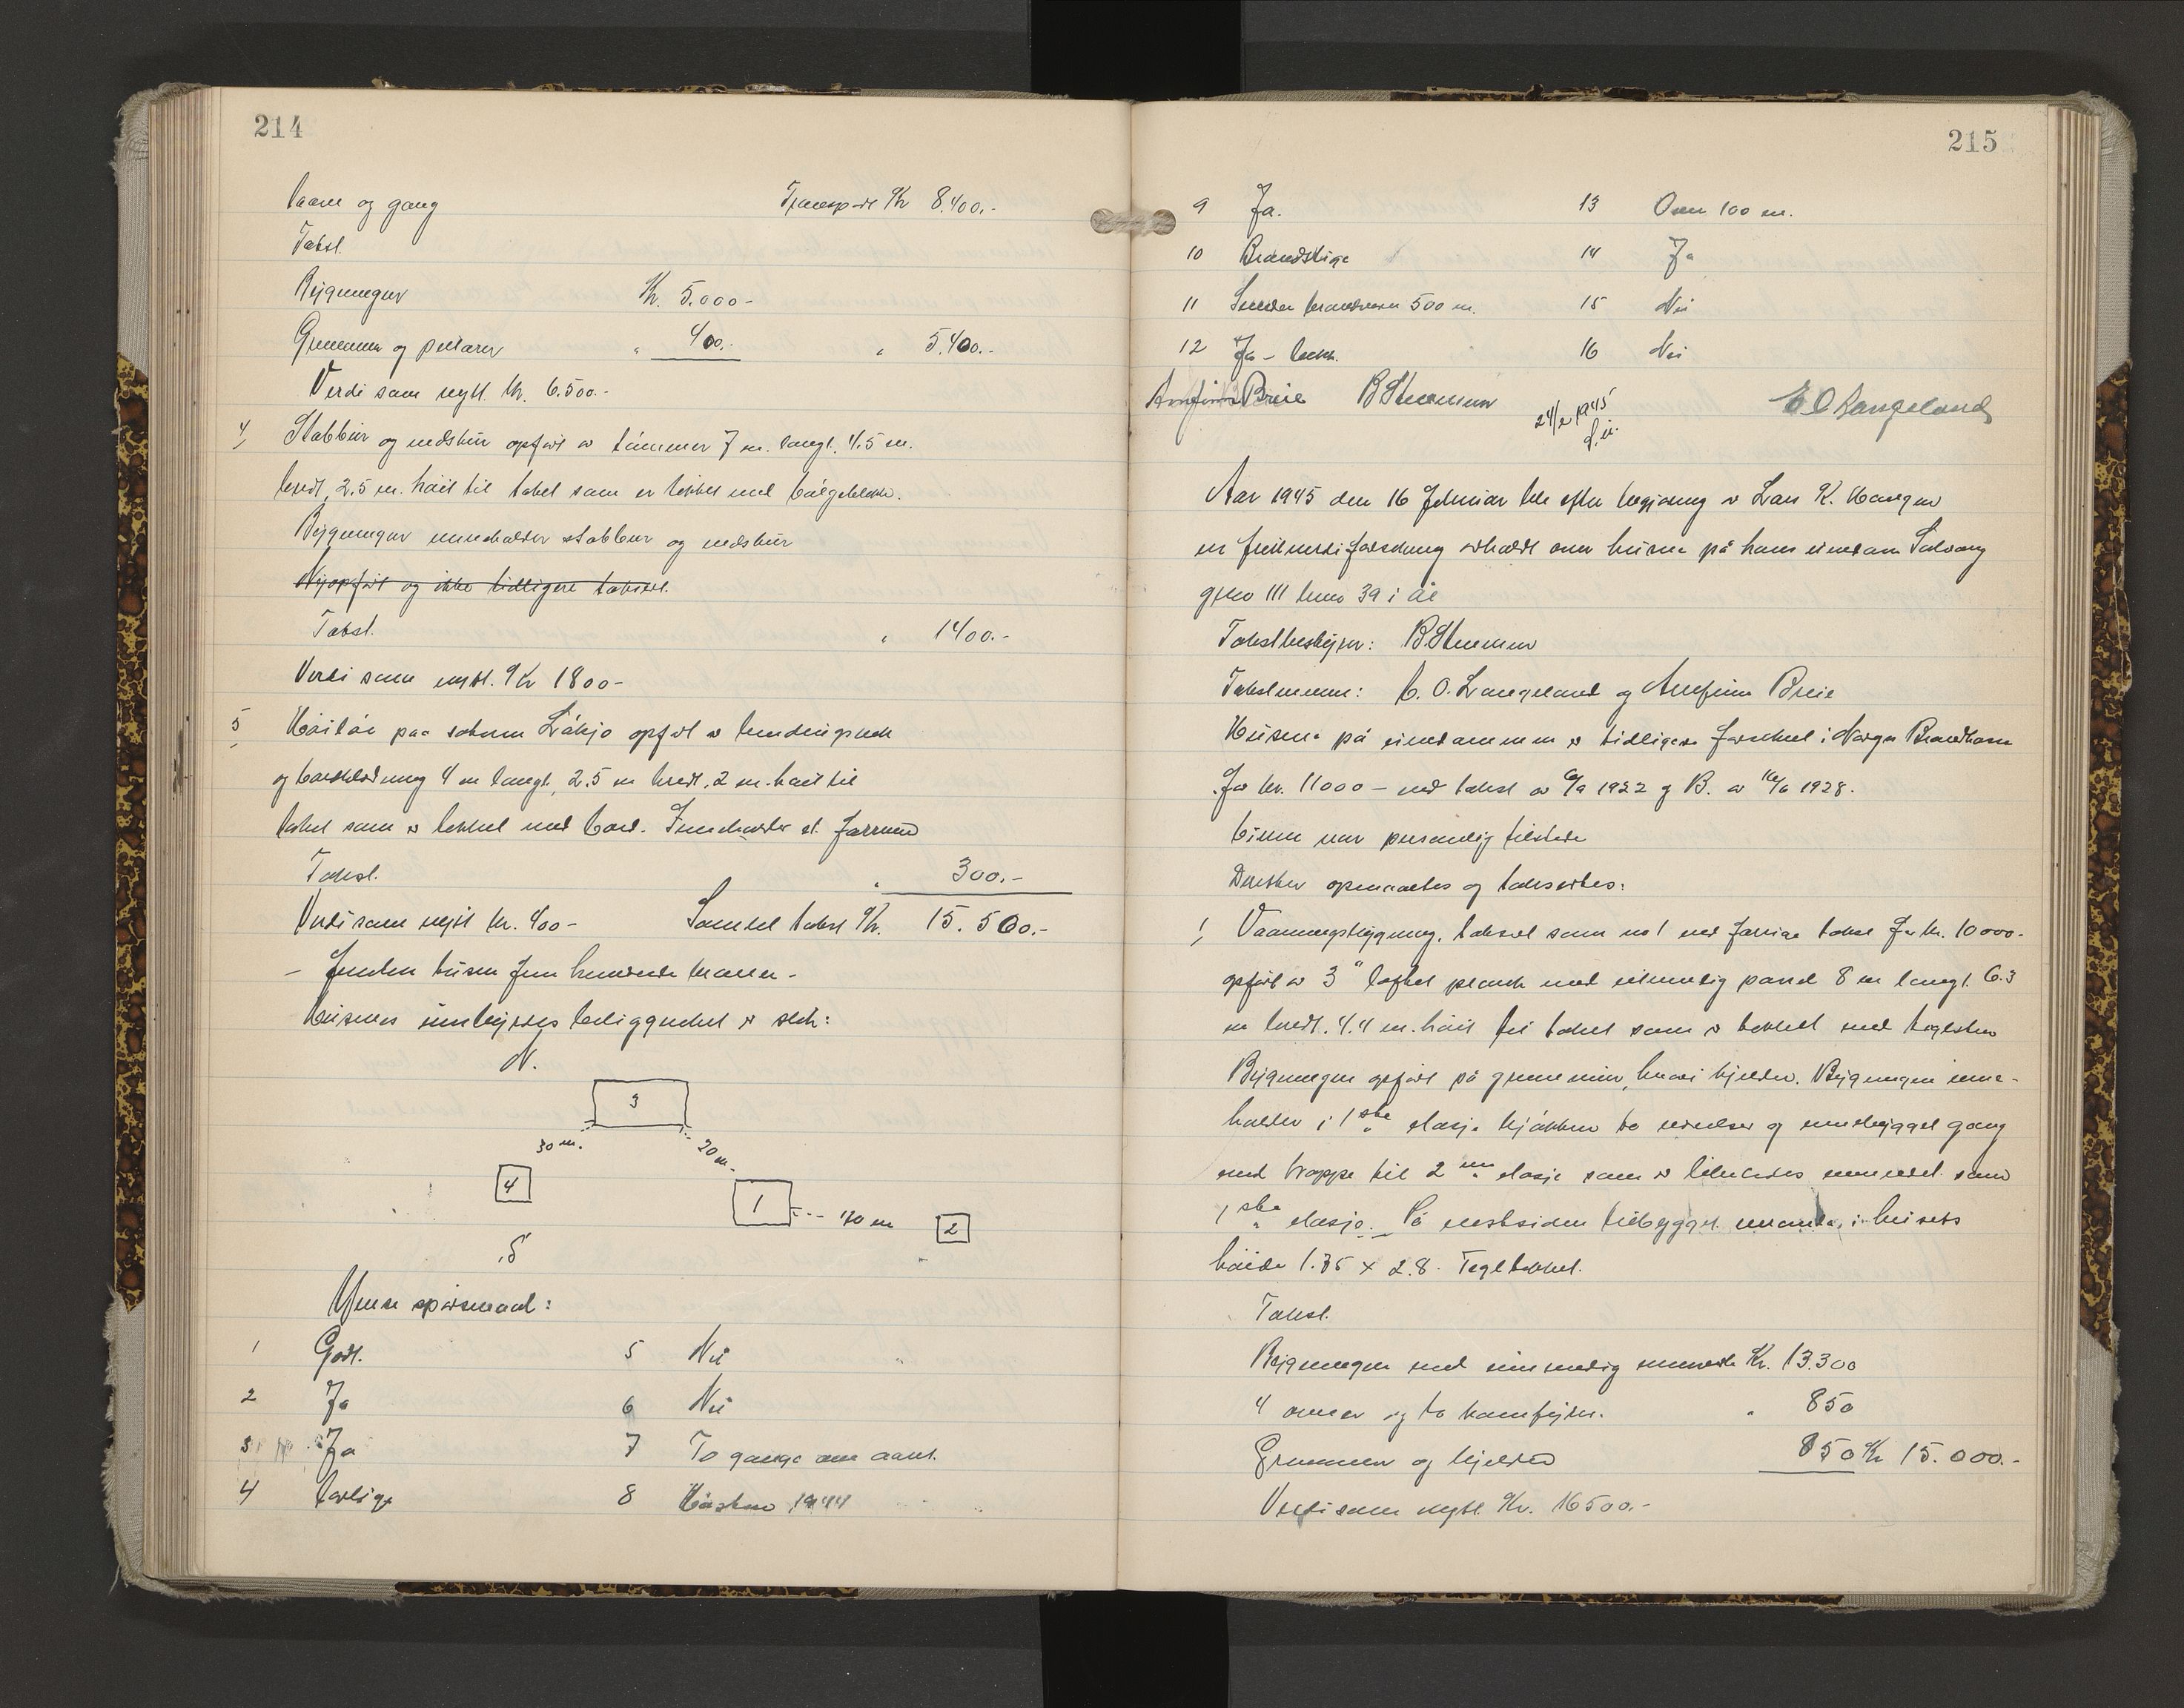 214
laave og gang Transport Kr 8.400.-
Takst.
Bygningen Kr. 5.000-
Grunmur og pilarer " 400.- " 5.400.-
Verdi som nytt. kr. 6.500.-
4, Stabbur og vedskur opført av tømmer 7 m. langt. 4,5 m.
bredt, 2.5 m. høit til taket som er tekket med bølgeblekk.
Bygningen inneholder stabbur og vedskur
Nyopført og ikke tidligere taksert.
Takst. " 1400.-
Verdi som nytt. Kr 1800-
5, Høiløe paa stølen opført av bindingsverk
og bordkledning 4 m langt, 2.5 m bredt. 2 m. høit til
taket som er tekket med bord. Inneholder et forrum
Takst. " 300.-
Verdi som nytt kr. 400- Samlet takst Kr. 15.500.-
- Femten tusen fem hundrede kroner -
Husenes innbyrdes beliggenhet er slik:
N.
3
30 m. 20 m.
4
1 - - - 140 m 2
S
Ymse spørsmaal:
1 Godt. 5 Nei
2 Ja 6 Nei
3 Ja 7 To gange om aaret.
4 Farlige 8 Høsten 1944
215
9 Ja. 13 Over 100 m.
10 Brandstige 14 Ja
11 500 m. 15 Nei
12 Ja - bekk. 16 Nei
Arnfinn Breie B Stuemon E O Langeland
24/2 1945
Aar 1945 den 16 Februar ble efter begjæring av Lars K.
en fullverdiforsikring avholdt over husene på hans eiendom Solvang
gno 111 bno 39 i
Takstbestyrer: B. Stuemon
Takstmenn: E. O. Langeland og Arnfinn Breie
Husene på eiendommen er tidligere forsikret i Norges Brandkasse
for kr. 11000 - ved takst av 1922 og B. av 1928.
Eieren var personlig tilstede
Derefter opmaaltes og taksertes:
1, Vaaningsbygning, taksert som no 1 ved forrige takst for kr. 10000-
opført av 3" laftet plank med utvendig panel 8 m langt. 6.3
m bredt. 4.4 m. høit til taket som er tekket med teglsten
Bygningen opført på grunnmur, hvori kjelder. Bygningen inne-
holder i 1ste etasje kjøkken to værelser og innebygget gang
med trappe til 2nen etasje som er innredet som
1ste etasje. På vestsiden tilbygget veranda i husets
høide 1.35 x 2.8. Tegltekket.
Takst.
Bygningen med innvendig innrede Kr. 13.300
4 ovner og to komfyrer. " 850
Grunmur og kjelder 850 Kr 15.000.-
Verdi som nytt. Kr. 16500.-